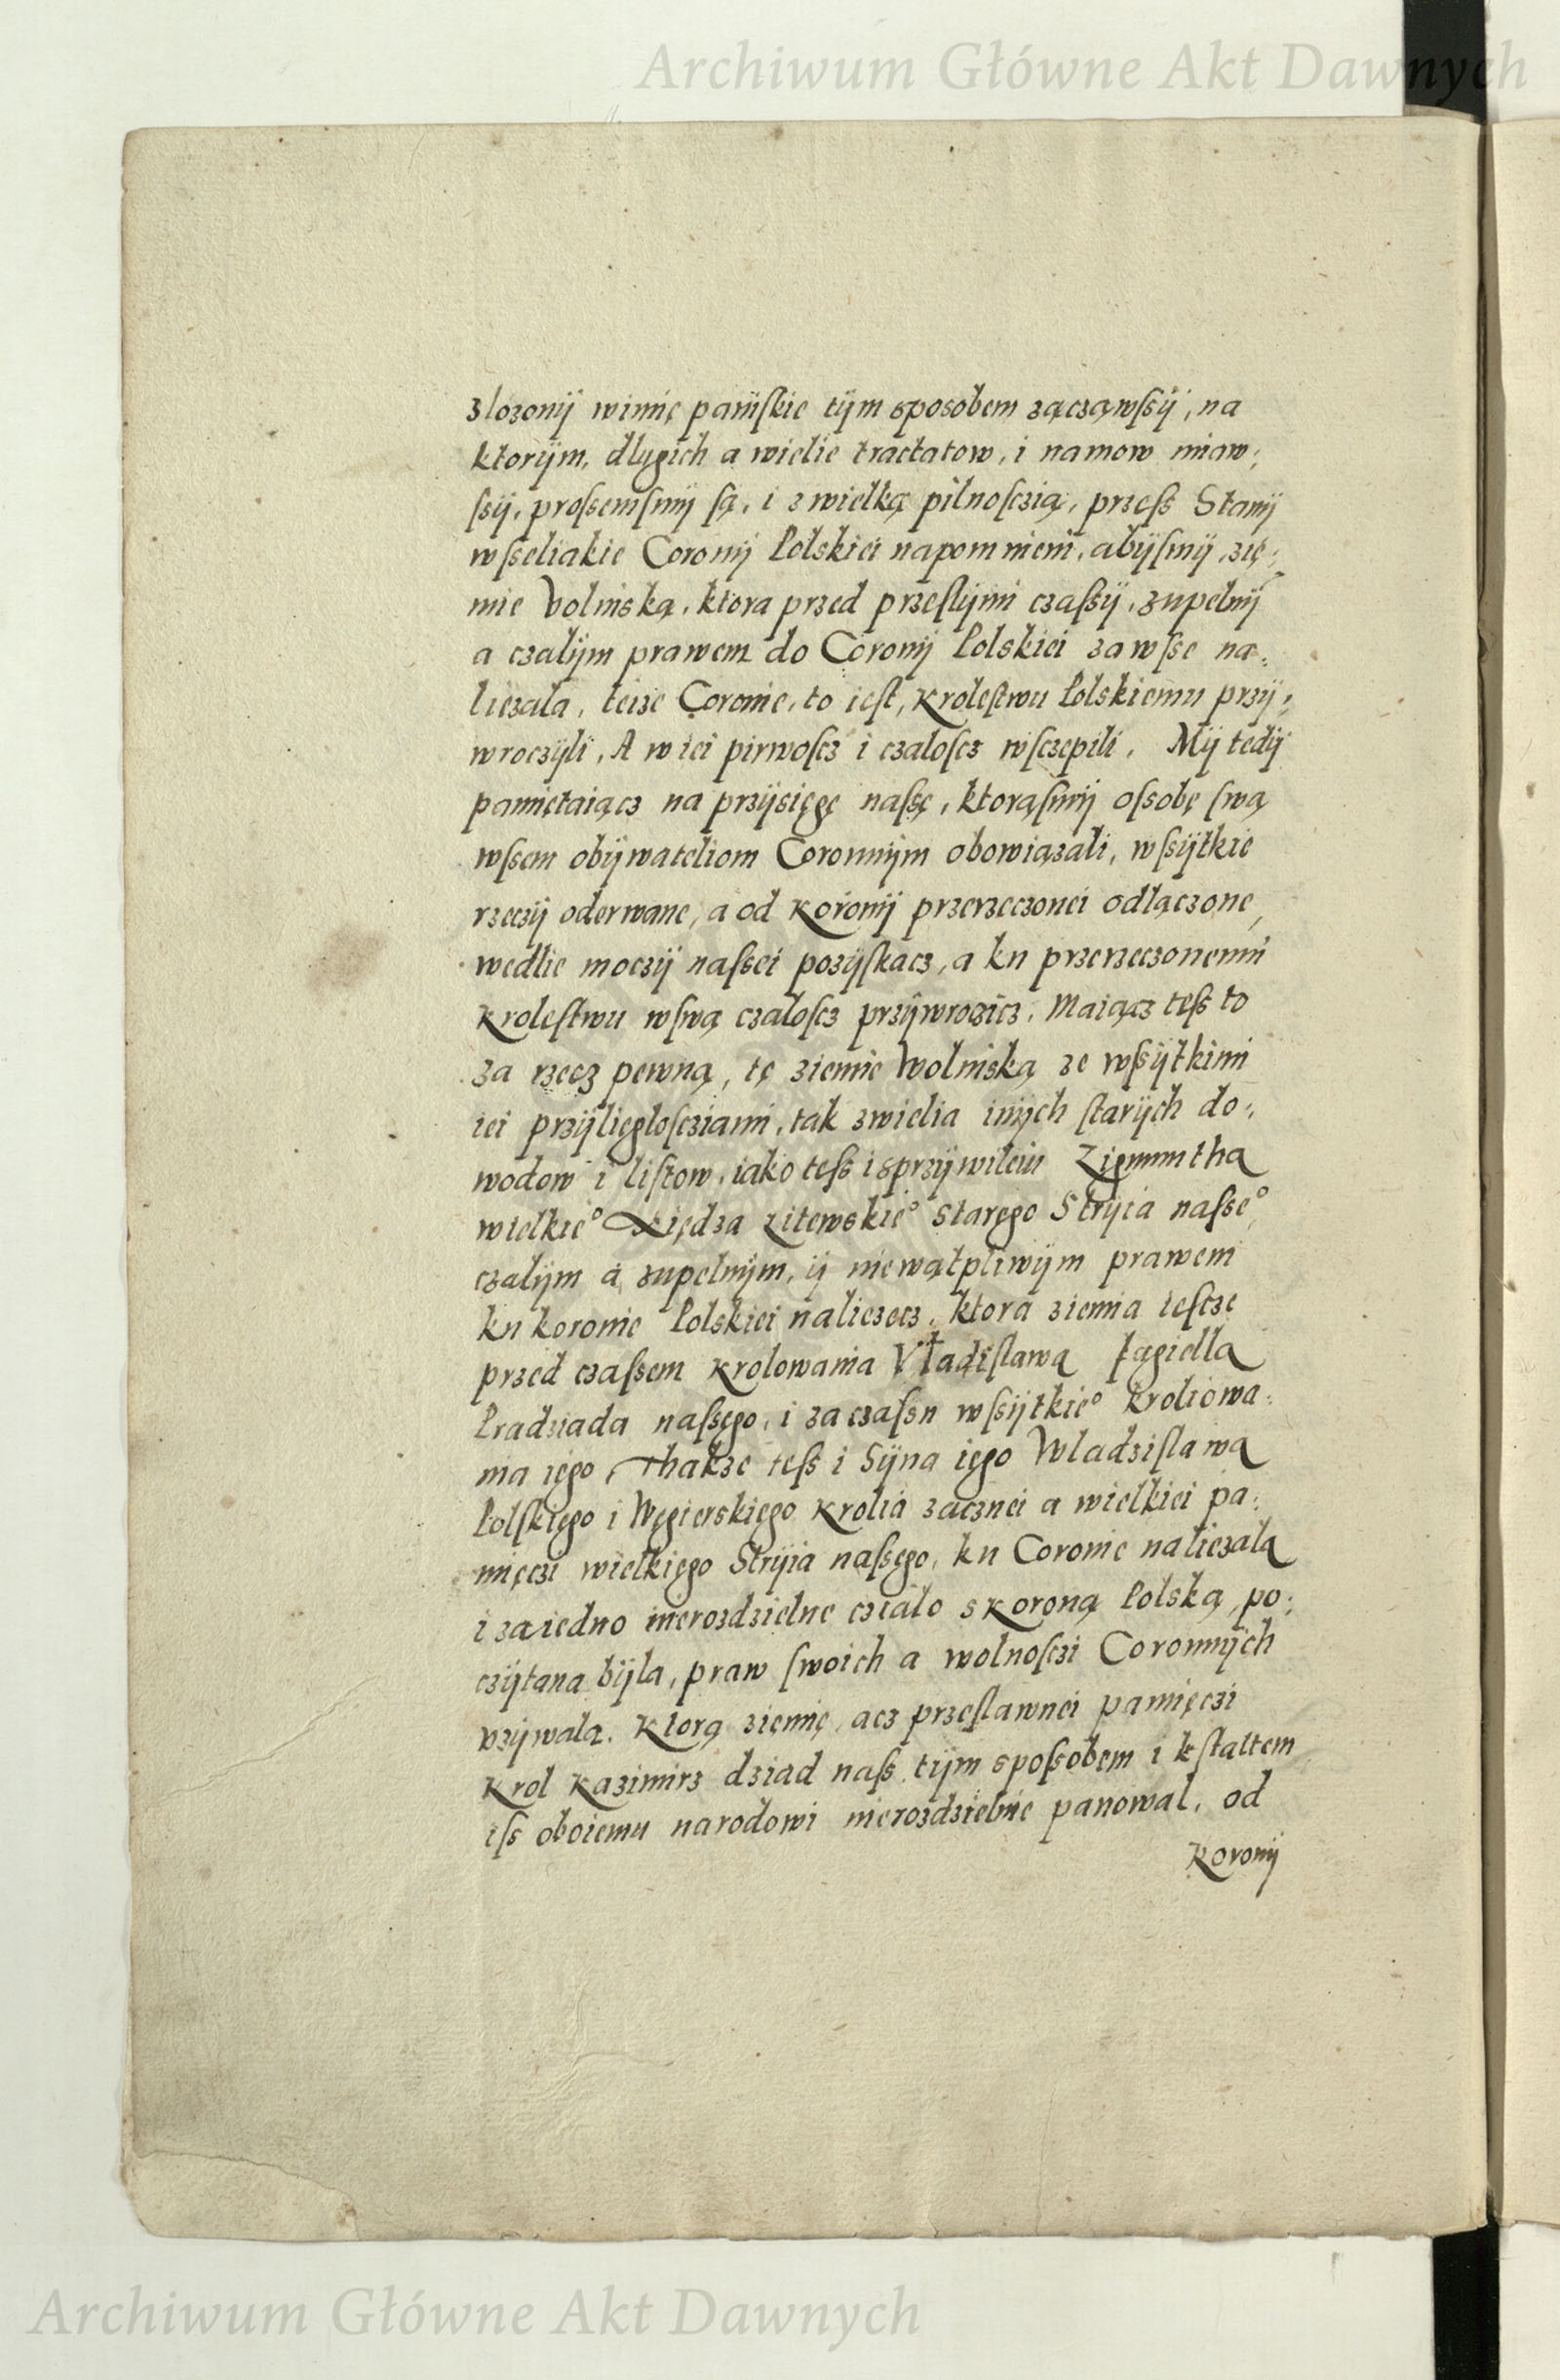 Archiwum Główne Akt Dawnych
zlozonÿ wimię pańſkie tÿm sposobem zącząwſsÿ, na
ktorÿm, dlugich a wielie tractatow, i namow miaw:
ſsÿ, proſsemſmÿ ſą, i z wielką pilnoſczią, przeſs Stanÿ
wſseliakie Coronÿ Polskiei napomnieni, abÿſmÿ, zię:
mie Volinską, ktora przed przeſlÿmi czaſsÿ, zupelnÿ
a czalÿm prawem do Coronÿ Polskiei zawſse na:
liezala, teize Coronie, to ieſt, Kroleſtwu Polskiemu przÿ:
wroczÿli, A w iei pirwoſcz i czaloſcz wſczepili, Mÿ tedÿ
pamiętaiącz na przÿsięgę naſsę, ktorąſmÿ oſsobę ſwą
wſsem obÿwateliom Coronnÿm obowiązali, wſsÿtkie
rzeczÿ oderwane, a od Koronÿ przerzeczonei odlączone,
wedlie moczÿ naſsei pozÿſkacz, a ku przerzeczonemu
Kroleſtwu wſwą czaloſcz przÿwroczicz, Maiącz teſs to
za rzecz pewną, tę ziemie Wolinską ze wſsÿtkimi
iei przÿliegloſcziami, tak zwielia inÿch ſtarÿch do:
wodow i liſtow, iako teſs i sprzÿwileiu Zigmuntha
wielkie° Xiędza Litewskie° Starego Strÿia naſse°,
czalÿm a zupelnÿm, ÿ niewątpliwÿm prawem
ku koronie Polskiei naliezecz, ktora ziemia ieſcze
przed czaſsem Krolowania Vładiſlawa Jagiella
Pradziada naſsego, i za czaſsu wſsÿtkie° Kroliowa:
nia iego, Thakze teſs i Sÿna iego Wladziſlawa
Polſkiego i Węgierskiego Krolia zacznei a wielkiei pa:
mięczi wielkiego Strÿia naſsego, ku Coronie naliezala
i zaiedno nierozdzielne czialo s Koroną Polską, po:
czÿtana bÿla, praw ſwoich a wolnoſczi Coronnÿch
vzÿwala. Ktorą ziemię, acz przeſlawnei pamięczi
Krol Kazimirz dziad naſs tÿm spoſsobem i kſtaltem
iſs oboiemu narodowi nierozdzielnie panowal, od
Koronÿ
Archiwum Główne Akt Dawnych